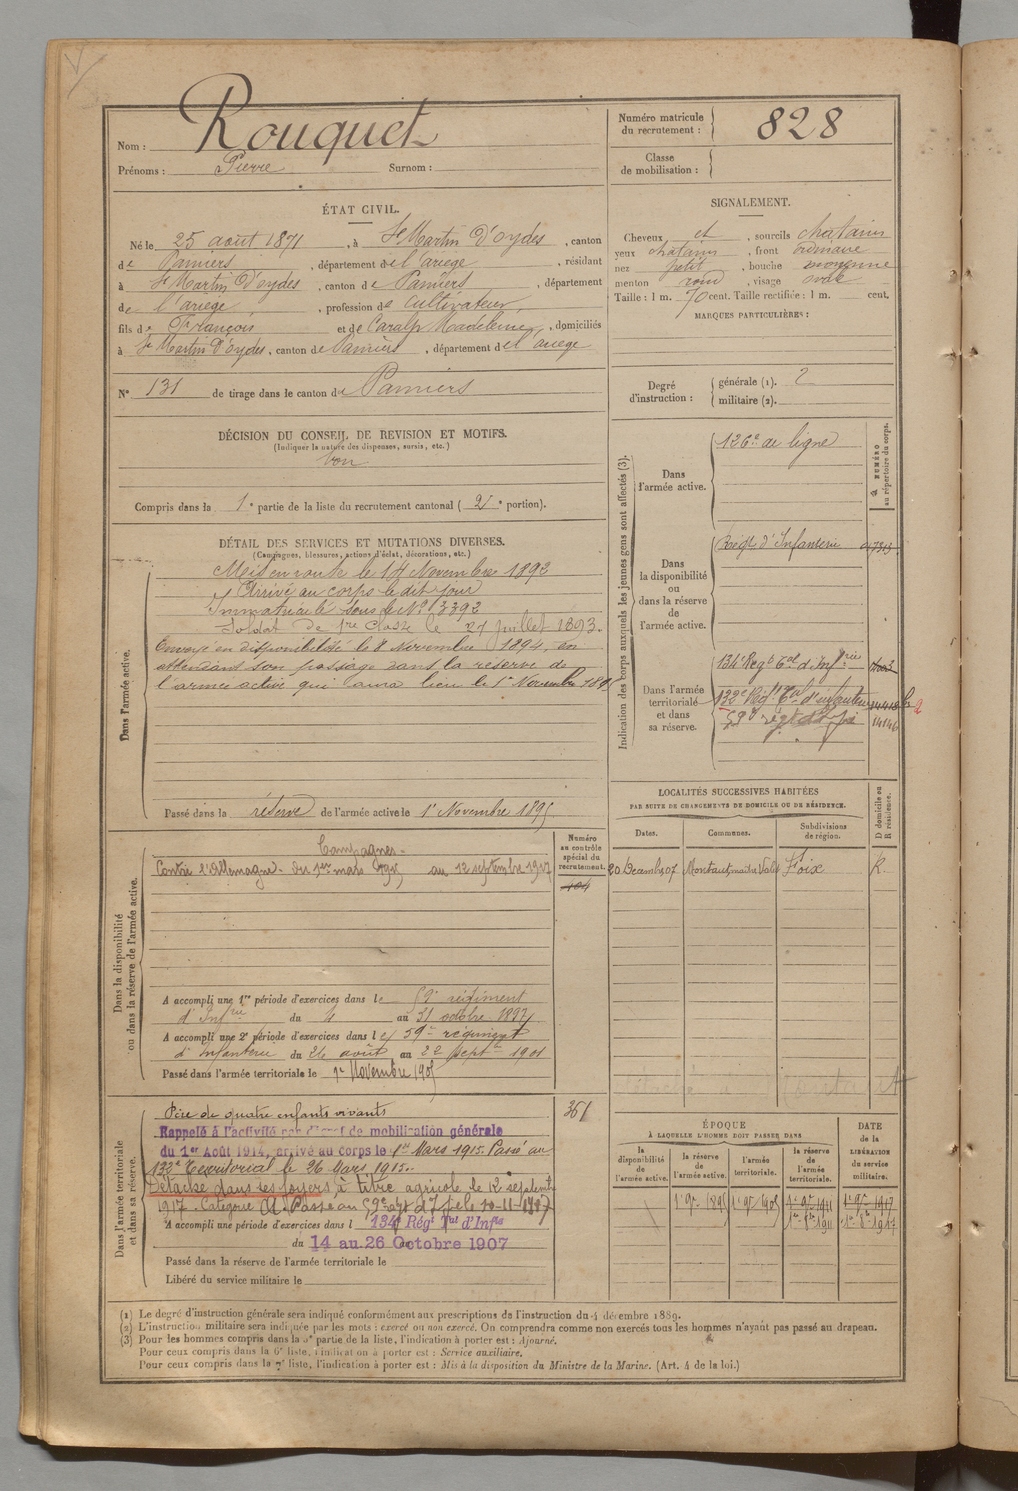 Nom : Rouquet
Prénoms : Pierre Surnom :
Numéro matricule du recrutement : 828
Classe de mobilisation :
ÉTAT CIVIL.
Né le 25 août 1871, à St Martin D'oydes, canton
de Pamiers, département de l'ariège, résidant
à St Martin D'oydes, canton de Pamiers, département
de l'ariège, profession de Cultivateur,
fils de François et de Caralp Madeleine, domiciliés
à St Martin D'oydes, canton de Pamiers, département de l'ariège
N° 131 de tirage dans le canton de Pamiers
SIGNALEMENT.
Cheveux et, sourcils chatains
yeux chatains, front ordinaire
nez petit, bouche moyenne
menton rond, visage ovale
Taille : 1 m. 70 cent. Taille rectifiée : 1 m. cent.
MARQUES PARTICULIÈRES :
Degré d'instruction : générale (1). 2
militaire (2).
DÉCISION DU CONSEIL DE REVISION ET MOTIFS.
(Indiquer la nature des dispenses, sursis, etc.)
bon
Compris dans la 1e partie de la liste du recrutement cantonal (2e portion).
DÉTAIL DES SERVICES ET MUTATIONS DIVERSES.
(Campagnes, blessures, actions d'éclat, décorations, etc.)
Dans l'armée active.
Mis en route le 14 Novembre 1892
Arrivé au corps le dit jour
Immatriculé sous le N° 3392
Soldat de 1re classe le 27 juillet 1893.
Envoyé en disponibilité le 8 Novembre 1894, en
attendant son passage dans la réserve de
l'armée active qui aura lieu le 1er Novembre 1895
Passé dans la réserve de l'armée active le 1er Novembre 1895
Indication des corps auxquels les jeunes gens sont affectés (3).
NUMÉRO au répertoire du corps.
Dans l'armée active. 126e de ligne
Dans la disponibilité ou dans la réserve de l'armée active. Régt d'Infanterie
Dans l'armée territoriale et dans sa réserve. 134e Régt Tal d'Infrie
132e Régt Tal d'infanterie
59e régt d'Infie
14146
LOCALITÉS SUCCESSIVES HABITÉES
PAR SUITE DE CHANGEMENTS DE DOMICILE OU DE RÉSIDENCE.
Dates. Communes. Subdivisions de région. D domicile ou R résidence.
20 Décemb 07 Foix R.
Dans la disponibilité ou dans la réserve de l'armée active.
Numéro au contrôle spécial du recrutement.
Campagnes.
Contre l'Allemagne du 1er mars 1915 au 12 septembre 1917
A accompli une 1re période d'exercices dans le régiment
d'Infrie du 4 au 31 octobre 1897
A accompli une 2e période d'exercices dans le 59e régiment
d'Infanterie du 26 août au 22 Septre 1901
Passé dans l'armée territoriale le 1er Novembre 1905
Dans l'armée territoriale et dans sa réserve.
Père de quatre enfants vivants 361
Rappelé à l'activité par décret de mobilisation générale
du 1er Août 1914, arrivé au corps le 1er Mars 1915. Passé au
132e Territorial le 26 Mars 1915.
Détaché dans ses foyers à titre agricole le 12 septembre
1917 - Catégorie A. Passé au 59e
A accompli une période d'exercices dans l 134e Régt Tal d'Infie
du 14 au 26 Octobre 1907
Passé dans la réserve de l'armée territoriale le
Libéré du service militaire le
ÉPOQUE
À LAQUELLE L'HOMME DOIT PASSER DANS
la disponibilité de l'armée active. la réserve de l'armée active. l'armée territoriale. la réserve de l'armée territoriale. DATE de la LIBÉRATION du service militaire.
1er 9bre 1895 1er 9bre 1905 1er 9bre 1911 1er 9bre 1917
(1) Le degré d'instruction générale sera indiqué conformément aux prescriptions de l'instruction du 4 décembre 1889.
(2) L'instruction militaire sera indiquée par les mots : exercé ou non exercé. On comprendra comme non exercés tous les hommes n'ayant pas passé au drapeau.
(3) Pour les hommes compris dans la 5e partie de la liste, l'indication à porter est : Ajourné.
Pour ceux compris dans la 6e liste, l'indication à porter est : Service auxiliaire.
Pour ceux compris dans la 7e liste, l'indication à porter est : Mis à la disposition du Ministre de la Marine. (Art. 4 de la loi.)